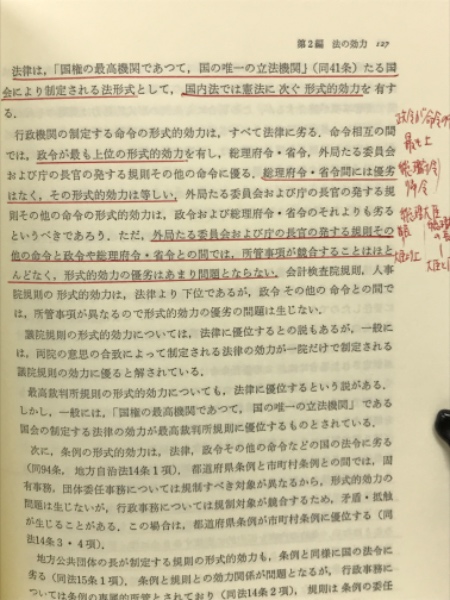 第2編 法の効力 127
法律は，「国権の最高機関であつて，国の唯一の立法機関」（同41条）たる国
会により制定される法形式として，国内法では憲法に次ぐ形式的効力を有す
る．
行政機関の制定する命令の形式的効力は，すべて法律に劣る．命令相互の間
では，政令が最も上位の形式的効力を有し，総理府令・省令，外局たる委員会
および庁の長官の発する規則その他の命令に優る．総理府令・省令間には優劣
はなく，その形式的効力は等しい．外局たる委員会および庁の長官の発する規
則その他の命令の形式的効力は，政令および総理府令・省令のそれよりも劣る
というべきであろう．ただ，外局たる委員会および庁の長官の発する規則その
他の命令と政令や総理府令・省令との間では，所管事項が競合することはほと
んどなく，形式的効力の優劣はあまり問題とならない．会計検査院規則，人事
院規則の形式的効力は，法律より下位であるが，政令その他の命令との間で
は，所管事項が異なるので形式的効力の優劣の問題は生じない．
議院規則の形式的効力については，法律に優位するとの説もあるが，一般に
は，両院の意思の合致によって制定される法律の効力が一院だけで制定される
議院規則の効力に優ると解されている．
最高裁判所規則の形式的効力についても，法律に優位するという説がある．
しかし，一般には，「国権の最高機関であつて，国の唯一の立法機関」である
国会の制定する法律の効力が最高裁判所規則に優位するものとされている．
次に，条例の形式的効力は，法律，政令その他の命令などの国の法令に劣る
（同94条，地方自治法14条1項）．都道府県条例と市町村条例との間では，固
有事務，団体委任事務については規制すべき対象が異なるから，形式的効力の
問題は生じないが，行政事務については規制対象が競合するため，矛盾・抵触
が生じることがある．この場合は，都道府県条例が市町村条例に優位する（同
法14条3・4項）．
地方公共団体の長が制定する規則の形式的効力も，条例と同様に国の法令に
劣る（同法15条1項）．条例と規則との効力関係が問題となるが，行政事務に
ついては条例の専属的所管とされており（同法14条2項），規則は条例の委任
政令が命令の
最も上
総理府令
省令